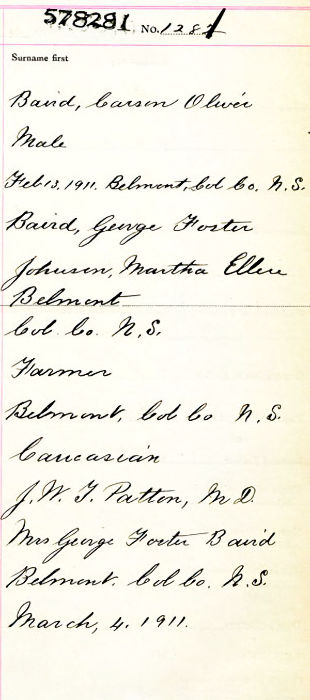 578281 No. 1282
Surname first
Baird, Carson Oliver
Male
Feb 13, 1911. Belmont, Col Co. N.S.
Baird, George Foster
Johnson, Martha Ellen
Belmont
Col. Co. N.S.
Farmer
Belmont, Col Co N.S.
Caucasian
J. W. T. Patton, M D.
Mrs George Foster Baird
Belmont. Col Co. N.S.
March, 4. 1911.